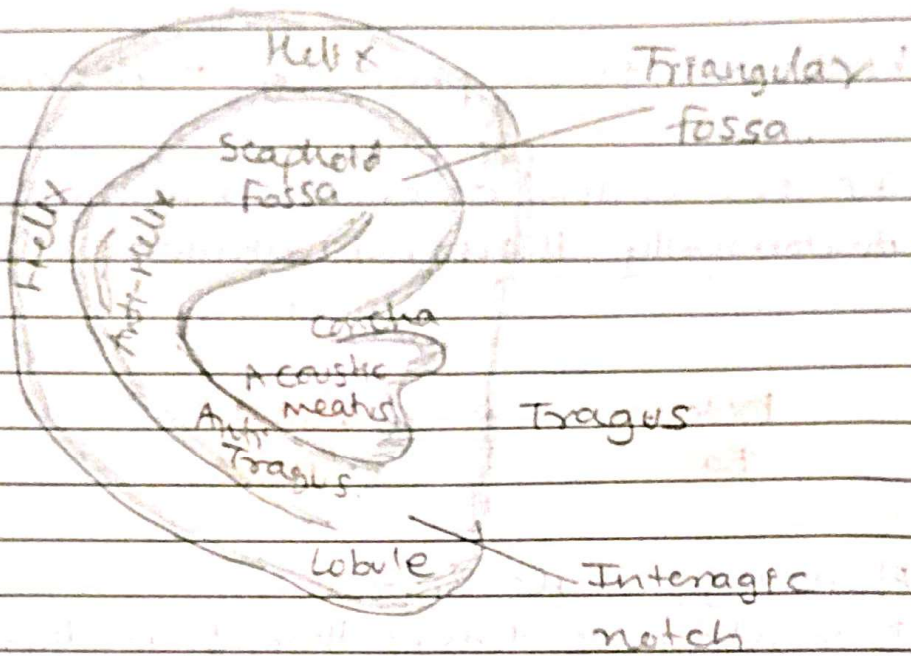 Helix
Triangular
fossa
Scaphoid
Fossa
Helix
Anti-Helix
Concha
Acoustic
meatus
Tragus
Anti
Tragus
Lobule
Interagic
notch